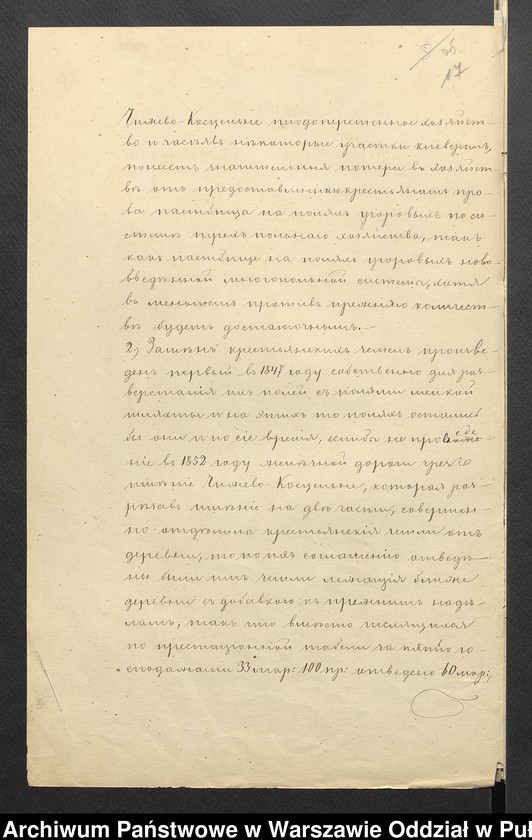 17
Чижево-Косцельне плодопеременное хозяйст-
во и часть некоторые участки клеверомъ,
понесетъ значительныя потери въ хозяйст-
вѣ отъ предоставленія крестьянамъ пра-
ва пастбища на поляхъ угоровыхъ по си-
стемѣ трехъ польнаго хозяйства, такъ
какъ пастбище на поляхъ угоровыхъ ново-
введенной многопольной системы, хотя
въ меньшемъ противъ прежняго количест-
вѣ будетъ достаточнымъ.-
2.) Замѣнъ крестьянскихъ земель произве-
денъ первый въ 1847 году собственно для раз-
верстанія ихъ полей съ полями мелкой
шляхты и на этихъ то поляхъ остались
бы они и по сіе время, еслибы не прове
ніе въ 1852 году желѣзной дороги чрезъ
имѣніе Чижево-Косцельне, которая раз-
рѣзавъ имѣніе на двѣ части, совершен-
но отдѣлила крестьянскія земли отъ
деревни, то по ихъ соглашенію отведе-
ны были имъ земли лежащія ближе
деревни съ добавкою къ прежнимъ надѣ-
ламъ, такъ что вмѣсто числящихся
по престаціонной табели за пятью го-
сподажами 33 мор: 100 пр: отведено 60 мор:,
Archiwum Państwowe w Warszawie Oddział w Puł